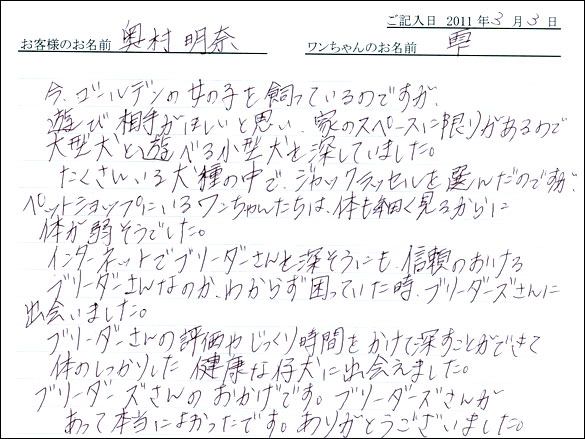 ご記入日 2011年3月3日
お客様のお名前 奥村 明奈 ワンちゃんのお名前 雫
今、ゴールデンの女の子を飼っているのですが、
遊び相手がほしいと思い、家のスペースに限りがあるので
大型犬と遊べる小型犬を深していました。
たくさんいる犬種の中で、ジャックラッセルを選んだのですが、
ペットショップにいるワンちゃんたちは、体も細く見るからに
体が弱そうでした。
インターネットでブリーダーさんを深そうにも、信頼のおける
ブリーダーさんなのか、わからず困っていた時、ブリーダーズさんに
出会いました。
ブリーダーさんの評価やじっくり時間をかけて深すことができて
体のしっかりした 健康な仔犬に出会えました。
ブリーダーズさんのおかげです。ブリーダーズさんが
あって本当によかったです。ありがとうございました。